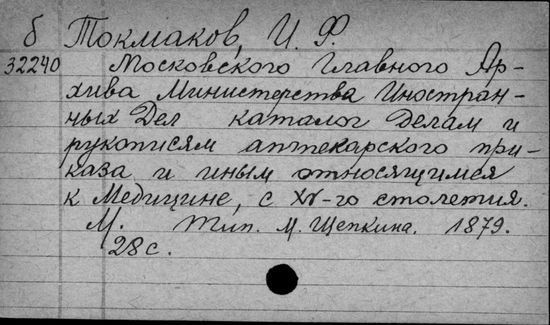 б Токмаков, И. Ф.
32240 Московского Главного Ар-
хива Министерства Иностран-
ных Дел каталог Делам и
рукописям аптекарского при-
каза и иным относящимся
к Медицине, с XV-го столетия.
М. Тип. М. Щепкина. 1879.
28 с.